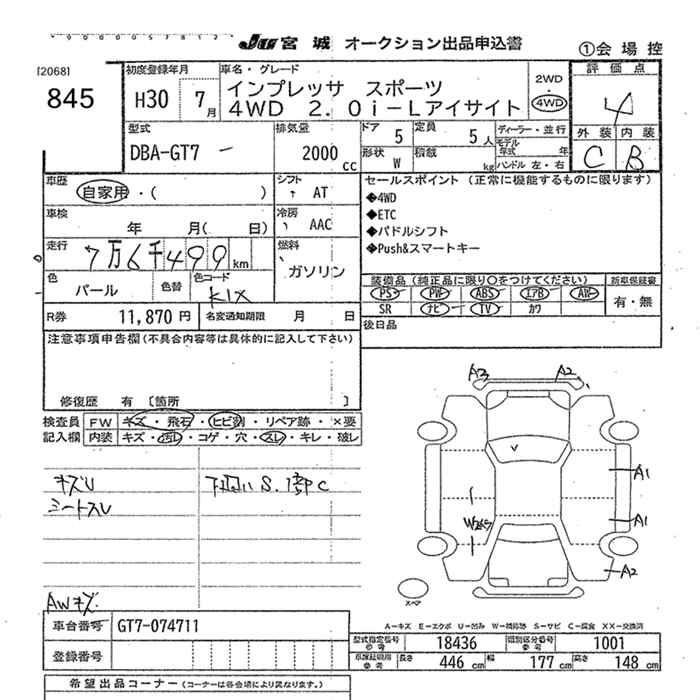 JU 宮城 オークション出品申込書
①会場控
[2068]
845
初度登録年月
H30 7月
車名・グレード
インプレッサ スポーツ
4WD 2.0i-Lアイサイト
2WD
・
4WD
評価点
4
外装 内装
C B
型式
DBA-GT7
排気量
2000 cc
ドア 5
定員 5人
形状 W
積載 kg
ディーラー・並行
モデル年式 年
ハンドル 左・右
車歴
自家用・( )
シフト
AT
車検
年 月( 日)
冷房
AAC
走行
7万6千499km
燃料
ガソリン
色
パール
色替
色コード
K1X
R券 11,870円
名変通知期限 月 日
セールスポイント (正常に機能するものに限ります)
◆4WD
◆ETC
◆パドルシフト
◆Push&スマートキー
装備品(純正品に限り○をつけてください)
PS PW ABS エアB AW
SR ナビ TV カワ
新車保証書
有・無
後日品
注意事項申告欄(不具合内容等は具体的に記入して下さい)
修復歴 有 〔箇所 〕
検査員記入欄
FW キズ・飛石・ヒビ割・リペア跡・×要
内装 キズ・汚レ・コゲ・穴・スレ・キレ・破レ
キズU
シートスレ
下回りS.1部C
AWキズ
A3 A2
A1
A1
A2
W2
スペア
A-キズ E-エクボ U-凹み W-補修跡 S-サビ C-腐食 XX-交換済
車台番号 GT7-074711
登録番号
型式指定番号 参考 18436
類別区分番号 参考 1001
車検証明用 参考 長さ 446cm 幅 177cm 高さ 148cm
希望出品コーナー(コーナーは各会場により異なります。)